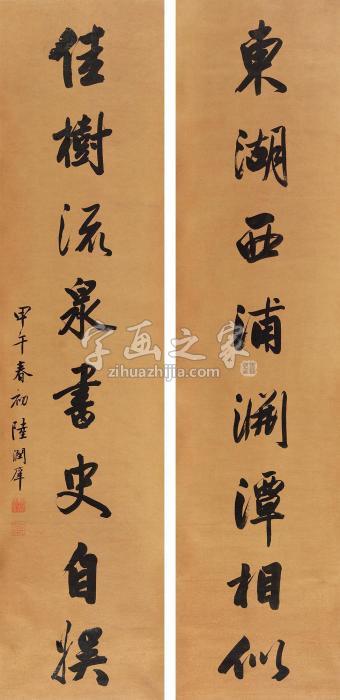 東湖西浦淵潭相似
佳樹流泉書史自娱
甲午春初陸潤庠
字画之家
zihuazhijia.com